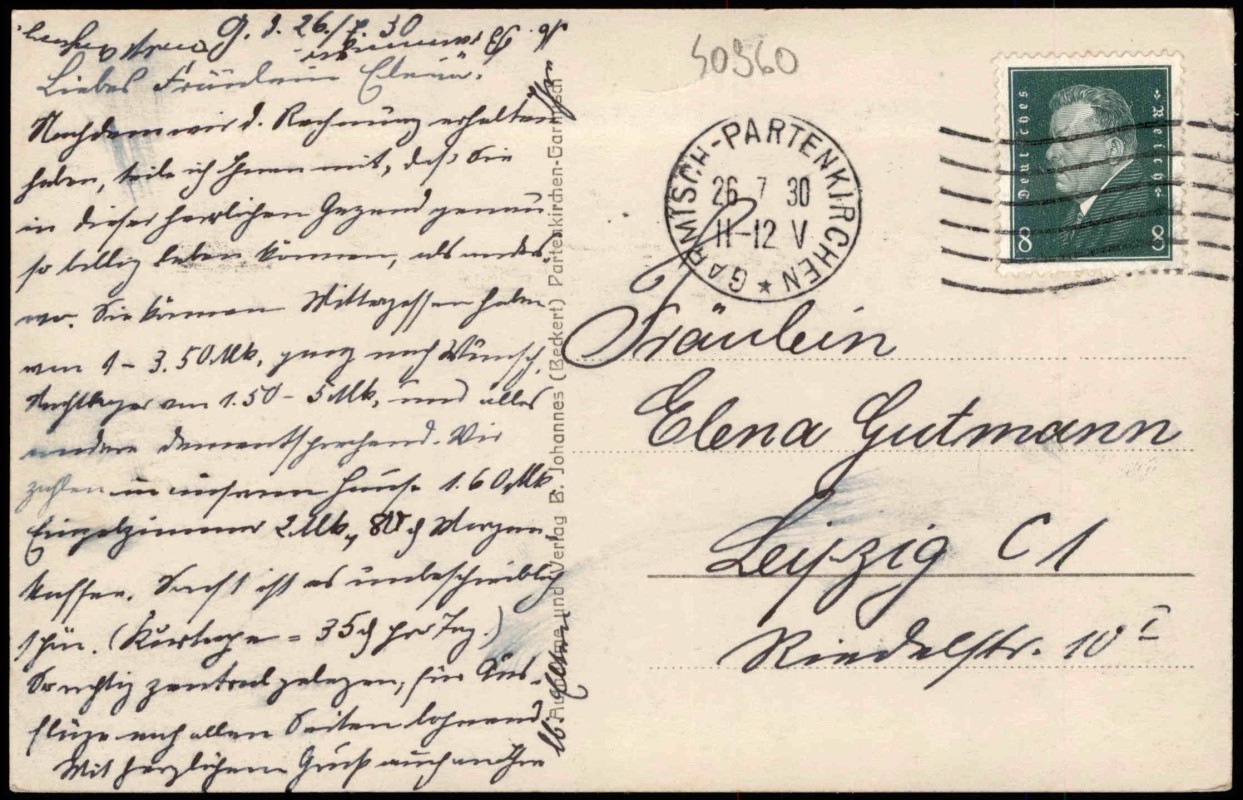 G. d. 26./7. 30
Liebes Fräulein Elena!
Nachdem wir d. Rechnung erhalten
haben, teile ich Ihnen mit, daß Sie
in dieser herrlichen Gegend genau
so billig leben können, als anders-
wo. Sie können Mittagessen haben
von 1 - 3.50 Mk, ganz nach Wunsch,
Nachtlager von 1.50 - 5 Mk, und alles
andere dementsprechend. Wir
zahlen in unserem Hause 1.60 Mk
Einzelzimmer 2 Mk, 80 ₰ Morgen-
kaffee. Sonst ist es unbeschreiblich
schön. (Kurtaxe = 35 ₰ per Tag.)
So richtig zentral gelegen, für Aus-
flüge nach allen Seiten lohnend
Mit herzlichem Gruß auch an Ihre
Aufnahme und Verlag B. Johannes (Beckert) Partenkirchen-Garmisch
40960
GARMISCH-PARTENKIRCHEN
26 7 30
11-12 V
Deutsches Reich
8 8
Fräulein
Elena Gutmann
Leipzig C 1
Riedelstr. 10 I